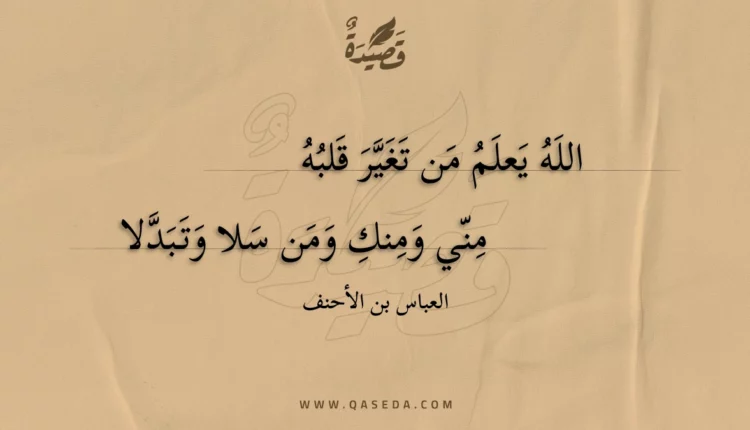 قَصِيْدَةٌ
اللَهُ يَعلَمُ مَن تَغَيَّرَ قَلبُهُ
مِنّي وَمِنكِ وَمَن سَلا وَتَبَدَّلا
العباس بن الأحنف
WWW.QASEDA.COM